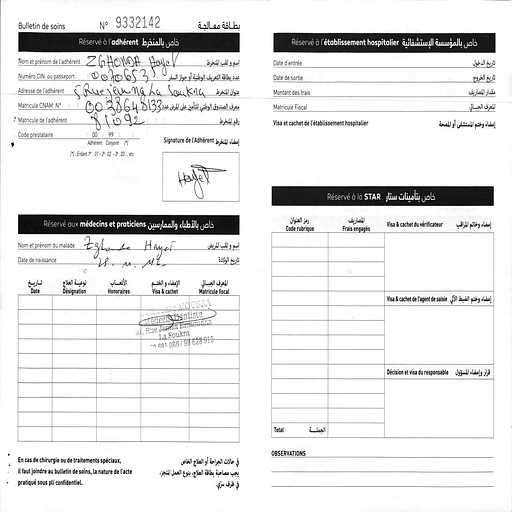 Bulletin de soins N° 9332142 بطاقة معالجة
Réservé à l'adhérent خاص بالمنخرط
Nom et prénom de l'adhérent ZGHONDA Hayet إسم و لقب المنخرط
Numéro CIN ou passeport 0070653 عدد بطاقة التعريف الوطنية أو جواز السفر
Adresse de l'adhérent La Soukra عنوان المنخرط
Matricule CNAM N° معرف الصندوق الوطني للتأمين على المرض عدد
Matricule de l'adhérent 81092 رقم المنخرط
Code prestataire 00 99
Adhérent Conjoint (*)
(*) : Enfant 1er : 01 - 2e : 02 - 3e : 03... etc
Signature de l'Adhérent إمضاء المنخرط
Hayet
Réservé aux médecins et praticiens خاص بالأطباء والممارسين
Nom et prénom du malade Hayet إسم و لقب المريض
Date de naissance تاريخ الولادة
تاريخ نوعية العلاج الأتعاب الإمضاء و الختم المعرف الجبائي
Date Désignation Honoraires Visa & cachet Matricule fiscal
MOUSSA
Médecin Dentiste
La Soukra
En cas de chirurgie ou de traitements spéciaux,
il faut joindre au bulletin de soins, la nature de l'acte
pratiqué sous pli confidentiel.
في حالات الجراحة أو العلاج الخاص
يجب مصاحبة بطاقة العلاج، بنوع العمل المنجز،
في ظرف سري.
Réservé à l'établissement hospitalier خاص بالمؤسسة الإستشفائية
Date d'entrée تاريخ الدخول
Date de sortie تاريخ الخروج
Montant des frais مقدار المصاريف
Matricule Fiscal المعرف الجبائي
Visa et cachet de l'établissement hospitalier إمضاء وختم المستشفى أو المصحة
Réservé à la STAR خاص بتأمينات ستار
رمز العنوان المصاريف
Code rubrique Frais engagés
Visa & cachet du vérificateur إمضاء وخاتم المراقب
Visa & cachet de l'agent de saisie إمضاء وختم الضبط الآلي
Décision et visa du responsable قرار وإمضاء المسؤول
Total الجملة
OBSERVATIONS